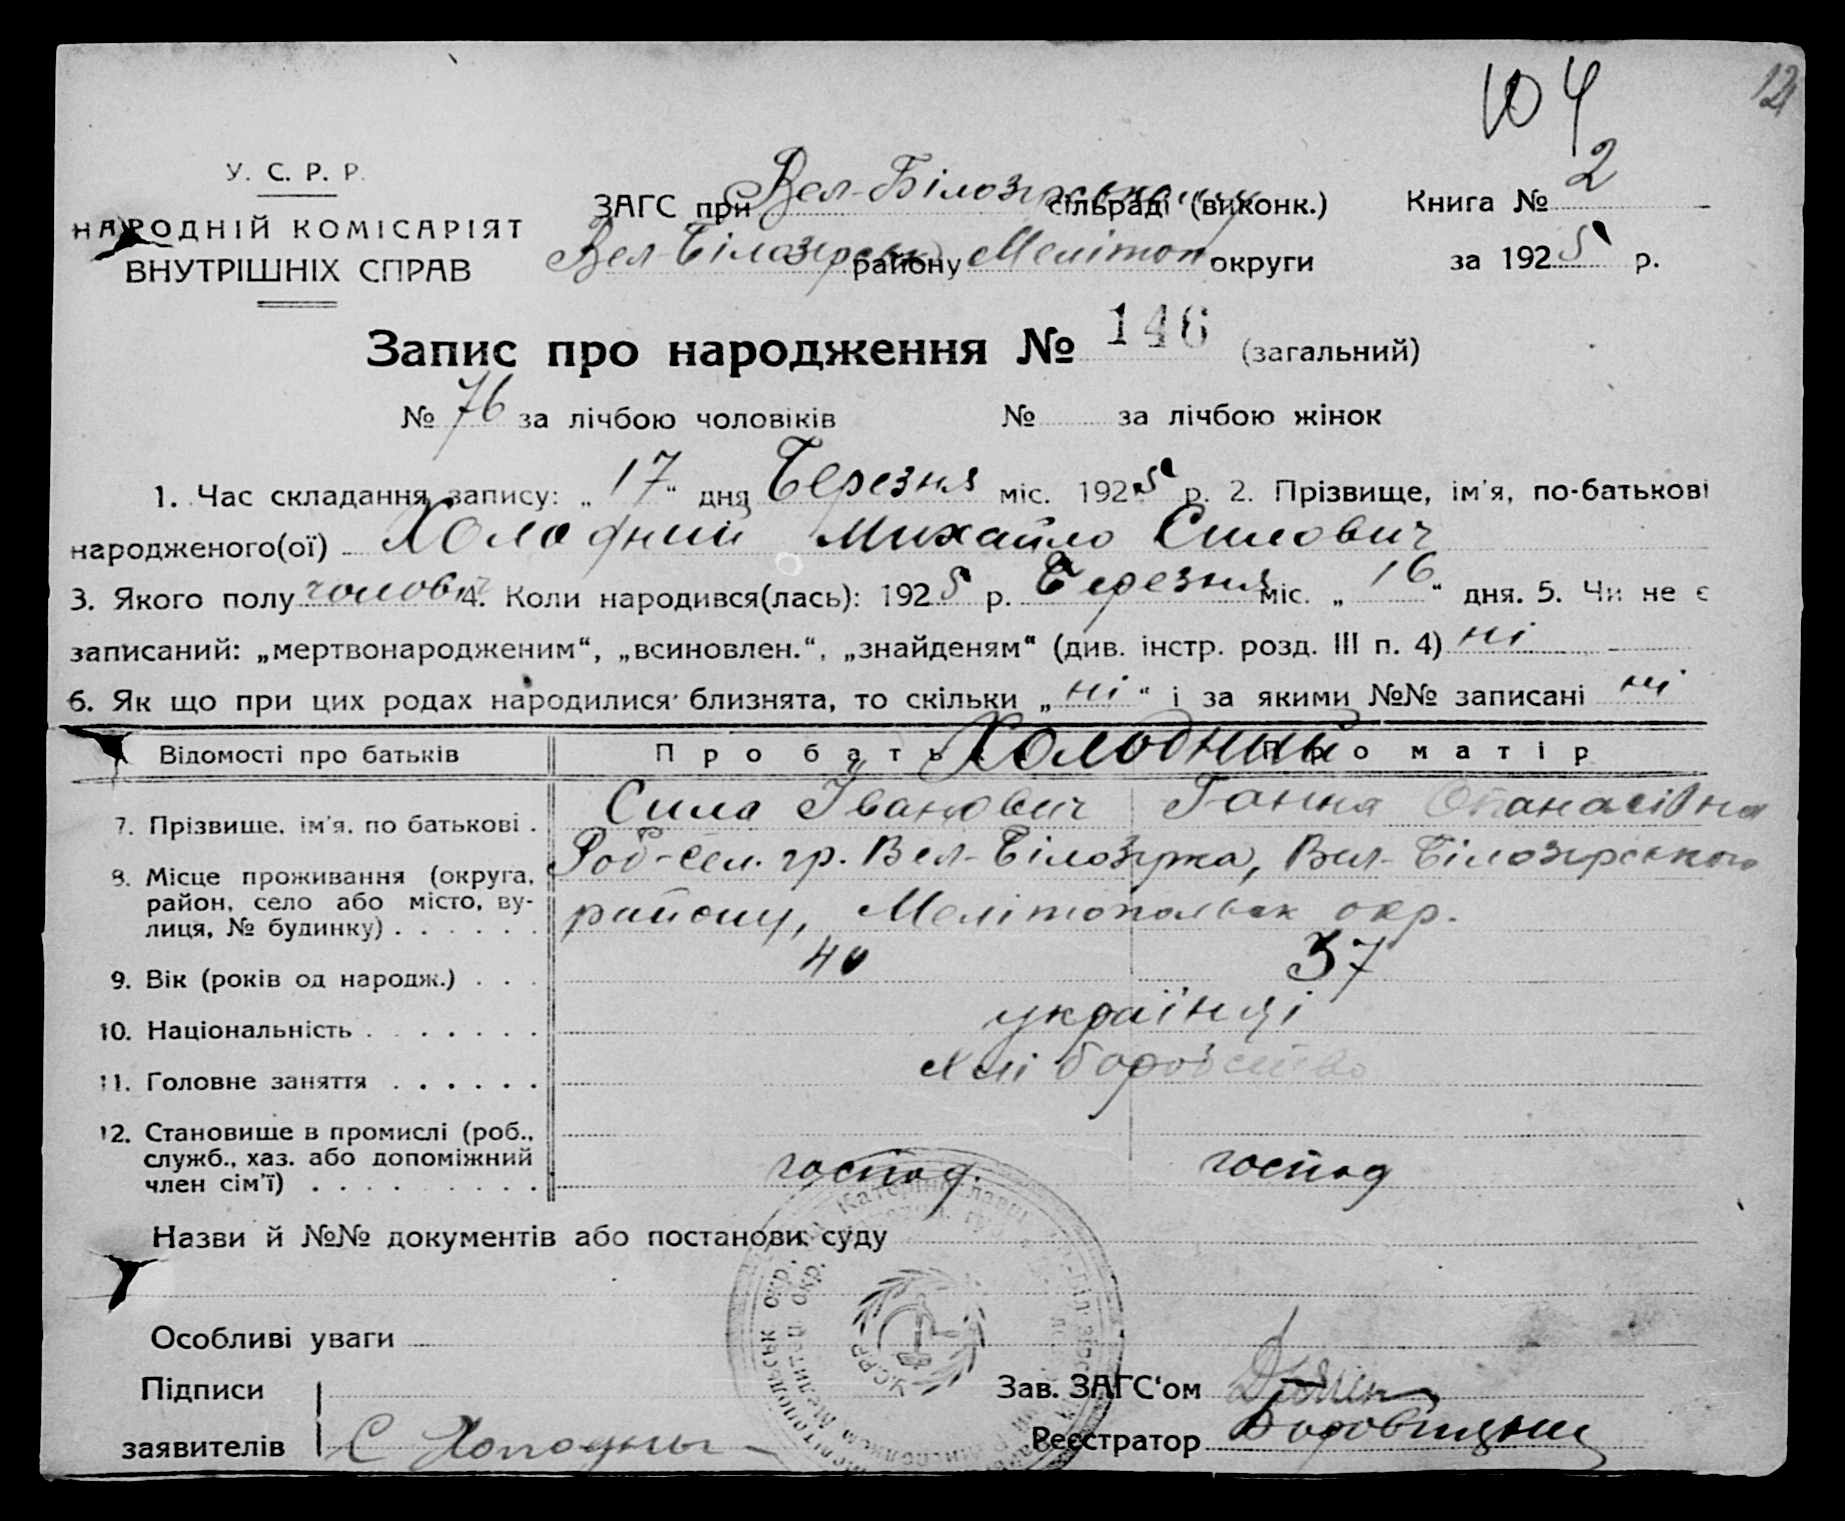 104
12
У. С. Р. Р.
НАРОДНІЙ КОМІСАРІЯТ
ВНУТРІШНІХ СПРАВ
ЗАГС при Вел-Білозірському сільраді (виконк.) Книга № 2
Вел-Білозірськ району Мелітоп округи за 1925 р.
Запис про народження № 146 (загальний)
№ 76 за лічбою чоловіків № за лічбою жінок
1. Час складання запису: „17“ дня Березня міс. 1925 р. 2. Прізвище, ім'я, по-батькові
народженого(ої) Холодний Михайло Силович
3. Якого полу чоловіч 4. Коли народився(лась): 1925 р. Березня міс. „16“ дня. 5. Чи не є
записаний: „мертвонародженим“, „всиновлен.“, „знайденям“ (див. інстр. розд. III п. 4) ні
6. Як що при цих родах народилися близнята, то скільки „ні“ і за якими №№ записані ні
Відомості про батьків Про батька Про матір
Холодний
7. Прізвище, ім'я, по батькові . Сила Іванович Ганна Опанасівна
8. Місце проживання (округа, район, село або місто, вулиця, № будинку) . . . . . . Род-сел. гр. Вел-Білозірка, Вел-Білозірського
району, Мелітопольск окр.
9. Вік (років од народж.) . . . 40 37
10. Національність . . . . . . . українці
11. Головне заняття . . . . . . Хліборобство
12. Становище в промислі (роб., служб., хаз. або допоміжний член сім'ї) . . . . . . . . . господ. господ
Назви й №№ документів або постанови суду
УСРР
Особливі уваги
Підписи
заявителів С Холодны
Зав. ЗАГС'ом
Реєстратор